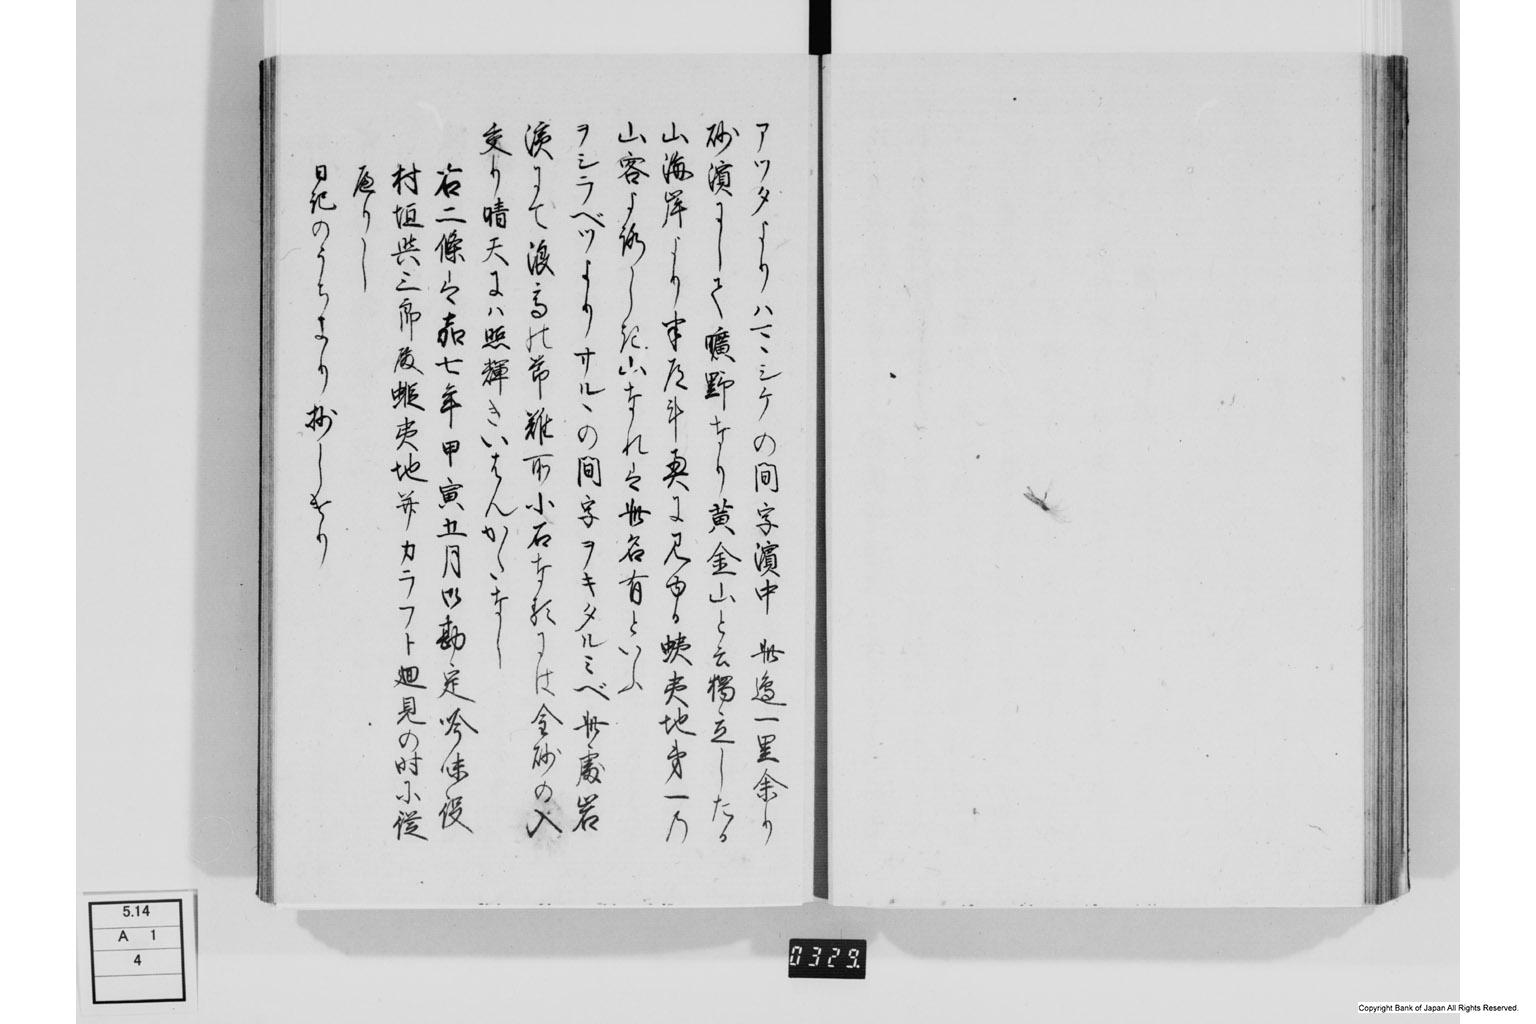 アツタよりハマシケの間字濱中 此邉一里余り
砂濱にして曠野なり黄金山と云獨立したる
山海岸より半道斗奥に見ゆる蛦夷地第一乃
山容よろしき山なれは此名有といふ
ヲシラベツよりサルヽの間字ヲキタルミベ此處岩
濱にて浪高の節難所小石なるには金砂の入
交り晴天にハ照輝きいはんかたなし
右二條は嘉七年甲寅五月御勘定吟味役
村垣與三郎殿蝦夷地并カラフト廻見の時に從
へりし
日記のうちより抄しけり
5.14
A 1
4
0329.
Copyright Bank of Japan All Rights Reserved.